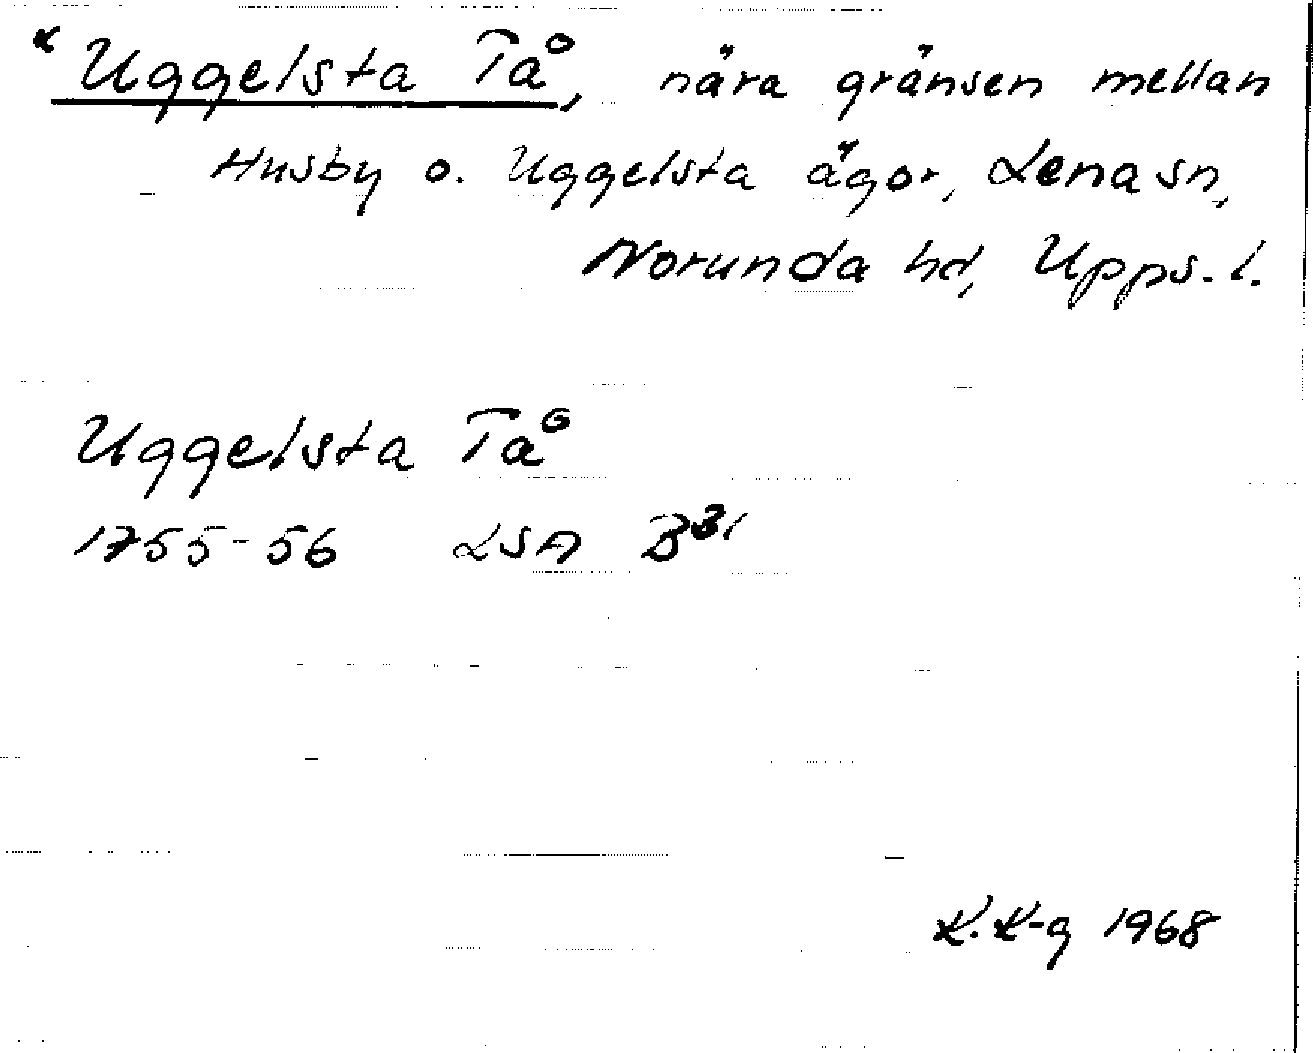 * Uggelsta Tå, nära gränsen mellan
Husby o. Uggelsta ägor, Lena sn,
Norunda hd, Upps. l.
Uggelsta Tå
1755-56 LSA B31
K. K-g 1968